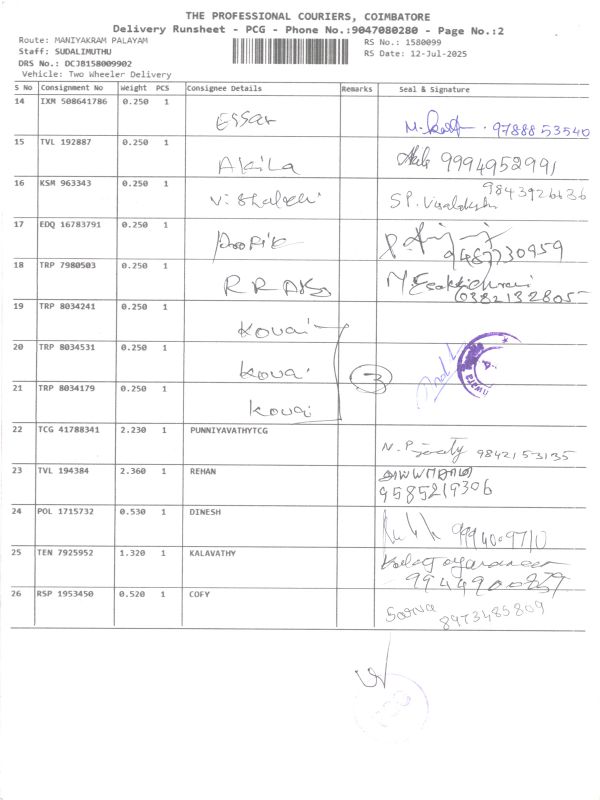 THE PROFESSIONAL COURIERS, COIMBATORE
Delivery Runsheet - PCG - Phone No.:9047080280 - Page No.:2
Route: MANIYAKRAM PALAYAM RS No.: 1580099
Staff: SUDALIMUTHU RS Date: 12-Jul-2025
DRS No.: DCJB158009902
Vehicle: Two Wheeler Delivery
S No Consignment No Weight PCS Consignee Details Remarks Seal & Signature
14 IXM 508641786 0.250 1 Essar 9788853540
15 TVL 192887 0.250 1 Akila Akila 9994952991
16 KSM 963343 0.250 1 SP. 9843926636
17 EDQ 16783791 0.250 1 9487730959
18 TRP 7980503 0.250 1
19 TRP 8034241 0.250 1 Kovai
20 TRP 8034531 0.250 1 Kovai 3
21 TRP 8034179 0.250 1 Kovai
22 TCG 41788341 2.230 1 PUNNIYAVATHYTCG N. 9842153135
23 TVL 194384 2.360 1 REHAN 9585219306
24 POL 1715732 0.530 1 DINESH
25 TEN 7925952 1.320 1 KALAVATHY
26 RSP 1953450 0.520 1 COFY 8973485809